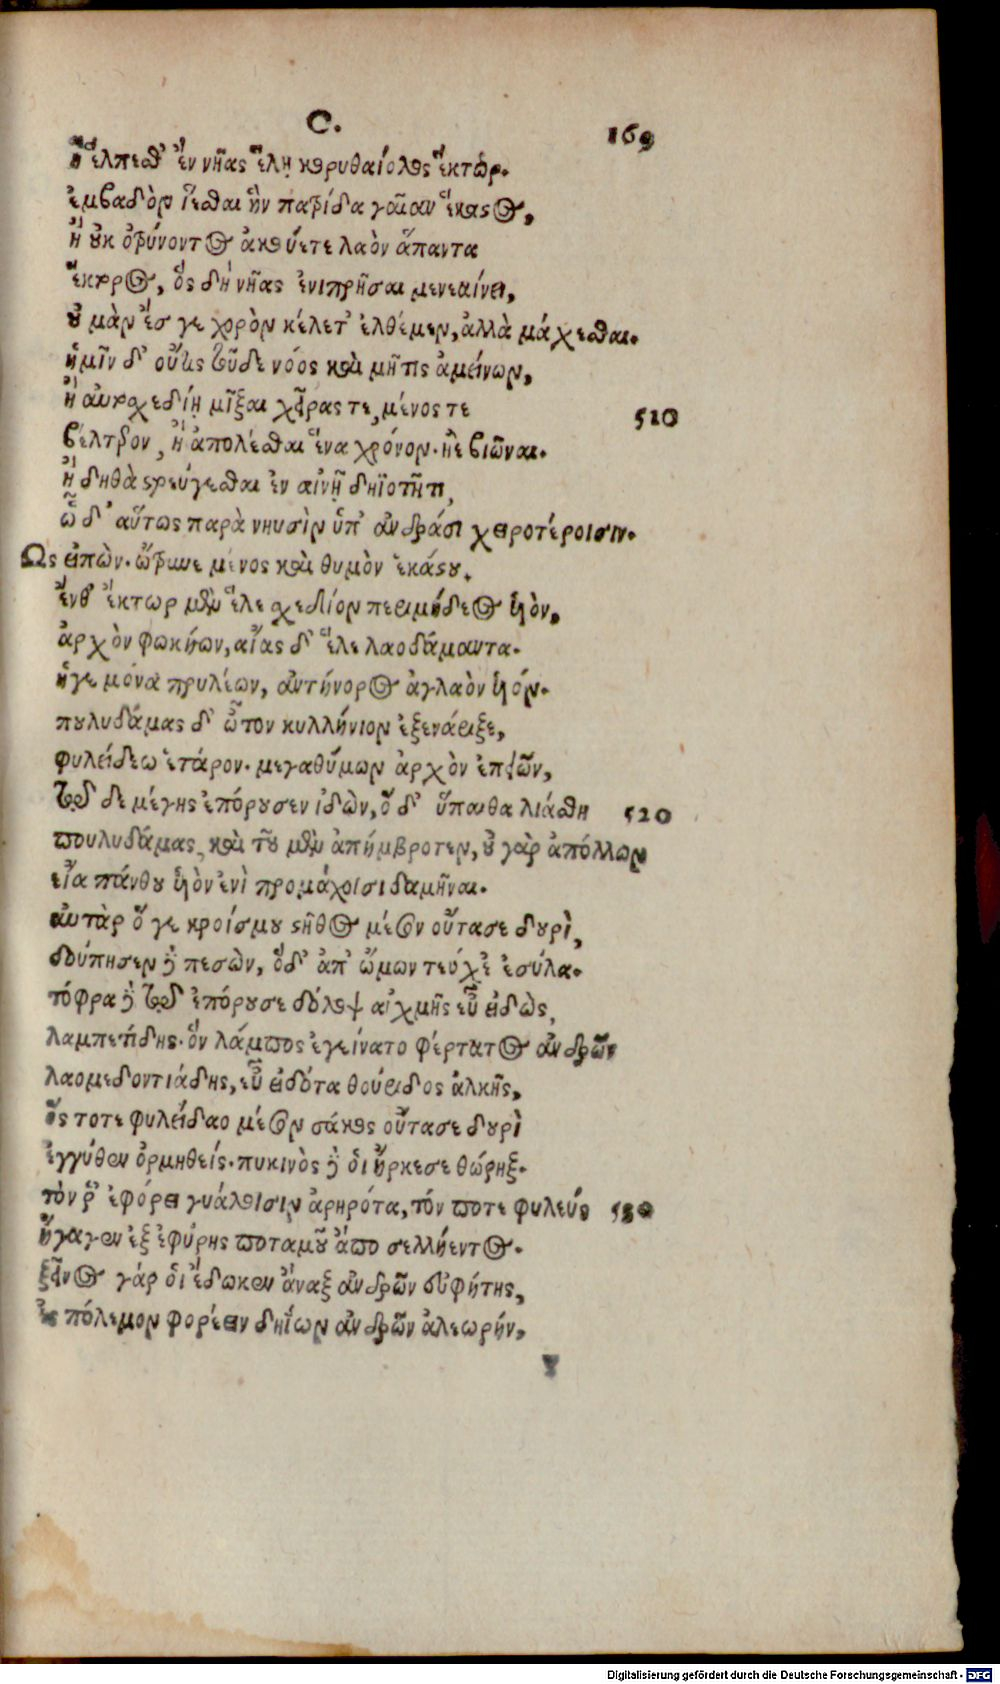 Ο. 169
ἢ ἔλπεσθ' ἐν νῆας ἕλῃ κορυθαίολος ἕκτωρ.
ἐμβαδὸν ἵξεσθαι ἣν πατρίδα γαῖαν ἕκαστος,
ἢ οὐκ ὀτρύνοντος ἀκούετε λαὸν ἅπαντα
ἕκτορος, ὃς δὴ νῆας ἐνιπρῆσαι μενεαίνει,
οὐ μὰν ἔς γε χορὸν κέλετ' ἐλθέμεν, ἀλλὰ μάχεσθαι.
ἡμῖν δ' οὔτις τοῦδε νόος καὶ μῆτις ἀμείνων,
ἢ αὐτοσχεδίῃ μῖξαι χεῖρας τε, μένος τε 510
βέλτερον, ἢ ἀπολέσθαι ἕνα χρόνον. ἠὲ βιῶναι.
ἢ δηθὰ στρεύγεσθαι ἐν αἰνῇ δηϊοτῆτι,
ὧδ' αὕτως παρὰ νηυσὶν ὑπ' ἀνδράσι χειροτέροισιν.
Ως εἰπὼν. ὤτρυνε μένος καὶ θυμὸν ἑκάστου.
ἔνθ' ἕκτωρ μὲν ἕλε σχεδίον περιμήδεος υἱὸν,
ἀρχὸν φωκήων, αἴας δ' ἕλε λαοδάμαντα.
ἡγεμόνα πρυλέων, ἀντήνορος ἀγλαὸν υἱόν.
πουλυδάμας δ' ὦτον κυλλήνιον ἐξενάριξε,
φυλείδεω ἑτάρον. μεγαθύμων ἀρχὸν ἐπειῶν,
τῷ δὲ μέγης ἐπόρουσεν ἰδὼν, ὃ δ' ὕπαιθα λιάσθη 520
πουλυδάμας, καὶ τοῦ μὲν ἀπήμβροτεν, οὐ γὰρ ἀπόλλων
εἴα πάνθου υἱὸν ἐνὶ προμάχοισι δαμῆναι.
αὐτὰρ ὅ γε κροίσμου στῆθος μέσον οὔτασε δουρὶ,
δούπησεν δὲ πεσὼν, ὃδ' ἀπ' ὤμων τεύχε' ἐσύλα.
τόφρα δὲ τῷ ἐπόρουσε δόλοψ αἰχμῆς εὖ εἰδὼς,
λαμπετίδης. ὃν λάμπος ἐγείνατο φέρτατος ἀνδρῶν
λαομεδοντιάδης, εὖ εἰδότα θούριδος ἀλκῆς,
ὃς τοτε φυλείδαο μέσον σάκος οὔτασε δουρὶ
ἐγγύθεν ὁρμηθείς. πυκινὸς δέ ὁι ἤρκεσε θώρηξ.
τὸν ῥ' ἐφόρει γυάλοισιν ἀρηρότα, τόν ποτε φυλεύς 530
ἤγαγεν ἐξ ἐφύρης ποταμοῦ ἄπο σελλήεντος.
ξεῖνος γάρ ὁι ἔδωκεν ἄναξ ἀνδρῶν εὐφήτης,
ἐς πόλεμον φορέειν δηΐων ἀνδρῶν ἀλεωρήν,
Y
Digitalisierung gefördert durch die Deutsche Forschungsgemeinschaft - DFG